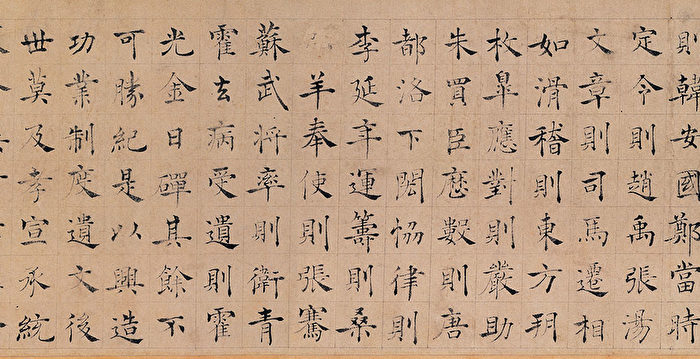 則韓安國鄭當時
定令則趙禹張湯
文章則司馬遷相
如滑稽則東方朔
枚皋應對則嚴助
朱買臣歷數則唐
都洛下閎恊律則
李延年運籌則桑
羊奉使則張騫
蘇武將率則衛青
霍去病受遺則霍
光金日磾其餘不
可勝紀是以興造
功業制度遺文後
世莫及孝宣承統